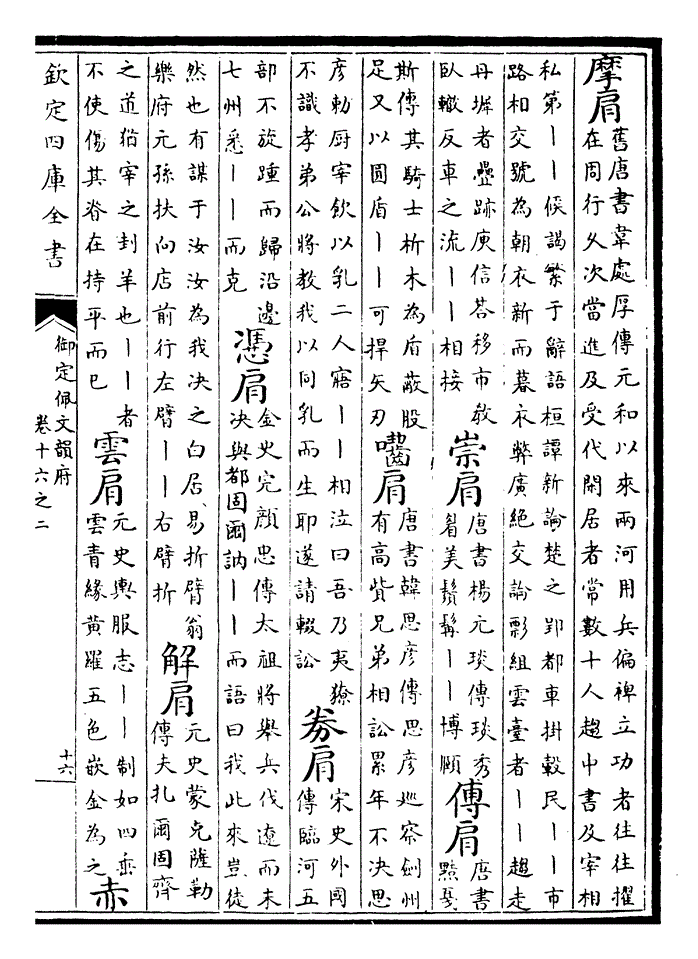 摩肩
舊唐書韋處厚傳元和以來兩河用兵偏裨立功者往往擢
在周行久次當進及受代閑居者常數十人趨中書及宰相
私第丨丨候謁繁于辭語桓譚新論楚之郢都車掛轂民丨丨市
路相交號為朝衣新而暮衣弊廣絶交論影組雲臺者丨丨趨走
丹墀者疊跡庾信荅移市教
臥轍反車之流丨丨相接
崇肩
唐書楊元琰傳琰秀
眉美鬚髯丨丨博頤
傅肩
唐書
黠戛
斯傳其騎士析木為盾蔽股
足又以圓盾丨丨可捍矢刃
囓肩
唐書韓思彦傳思彦廵察劍州
有高貲兄弟相訟累年不决思
彦勅厨宰飲以乳二人寤丨丨相泣曰吾乃夷獠
不識孝弟公將教我以同乳而生耶遂請輟訟
劵肩
宋史外國
傳臨河五
部不旋踵而歸沿邊
七州悉丨丨而克
慿肩
金史完顔忠傳太祖將舉兵伐遼而未
决與都固爾訥丨丨而語曰我此來豈徒
然也有謀于汝汝為我决之白居易折臂翁
樂府元孫扶向店前行左臂丨丨右臂折
解肩
元史蒙克薩勒
傳夫扎爾固齊
之道猶宰之封羊也丨丨者
不使傷其脊在持平而已
雲肩
元史輿服志丨丨制如四垂
雲青緣黄羅五色嵌金為之
赤
欽定四庫全書
御定佩文韻府
卷十六之二
十六